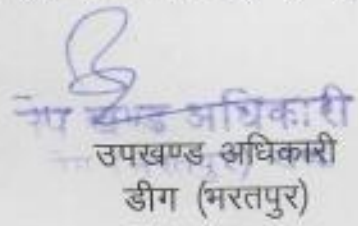 उप खण्ड अधिकारी
उपखण्ड अधिकारी
डीग (भरतपुर)